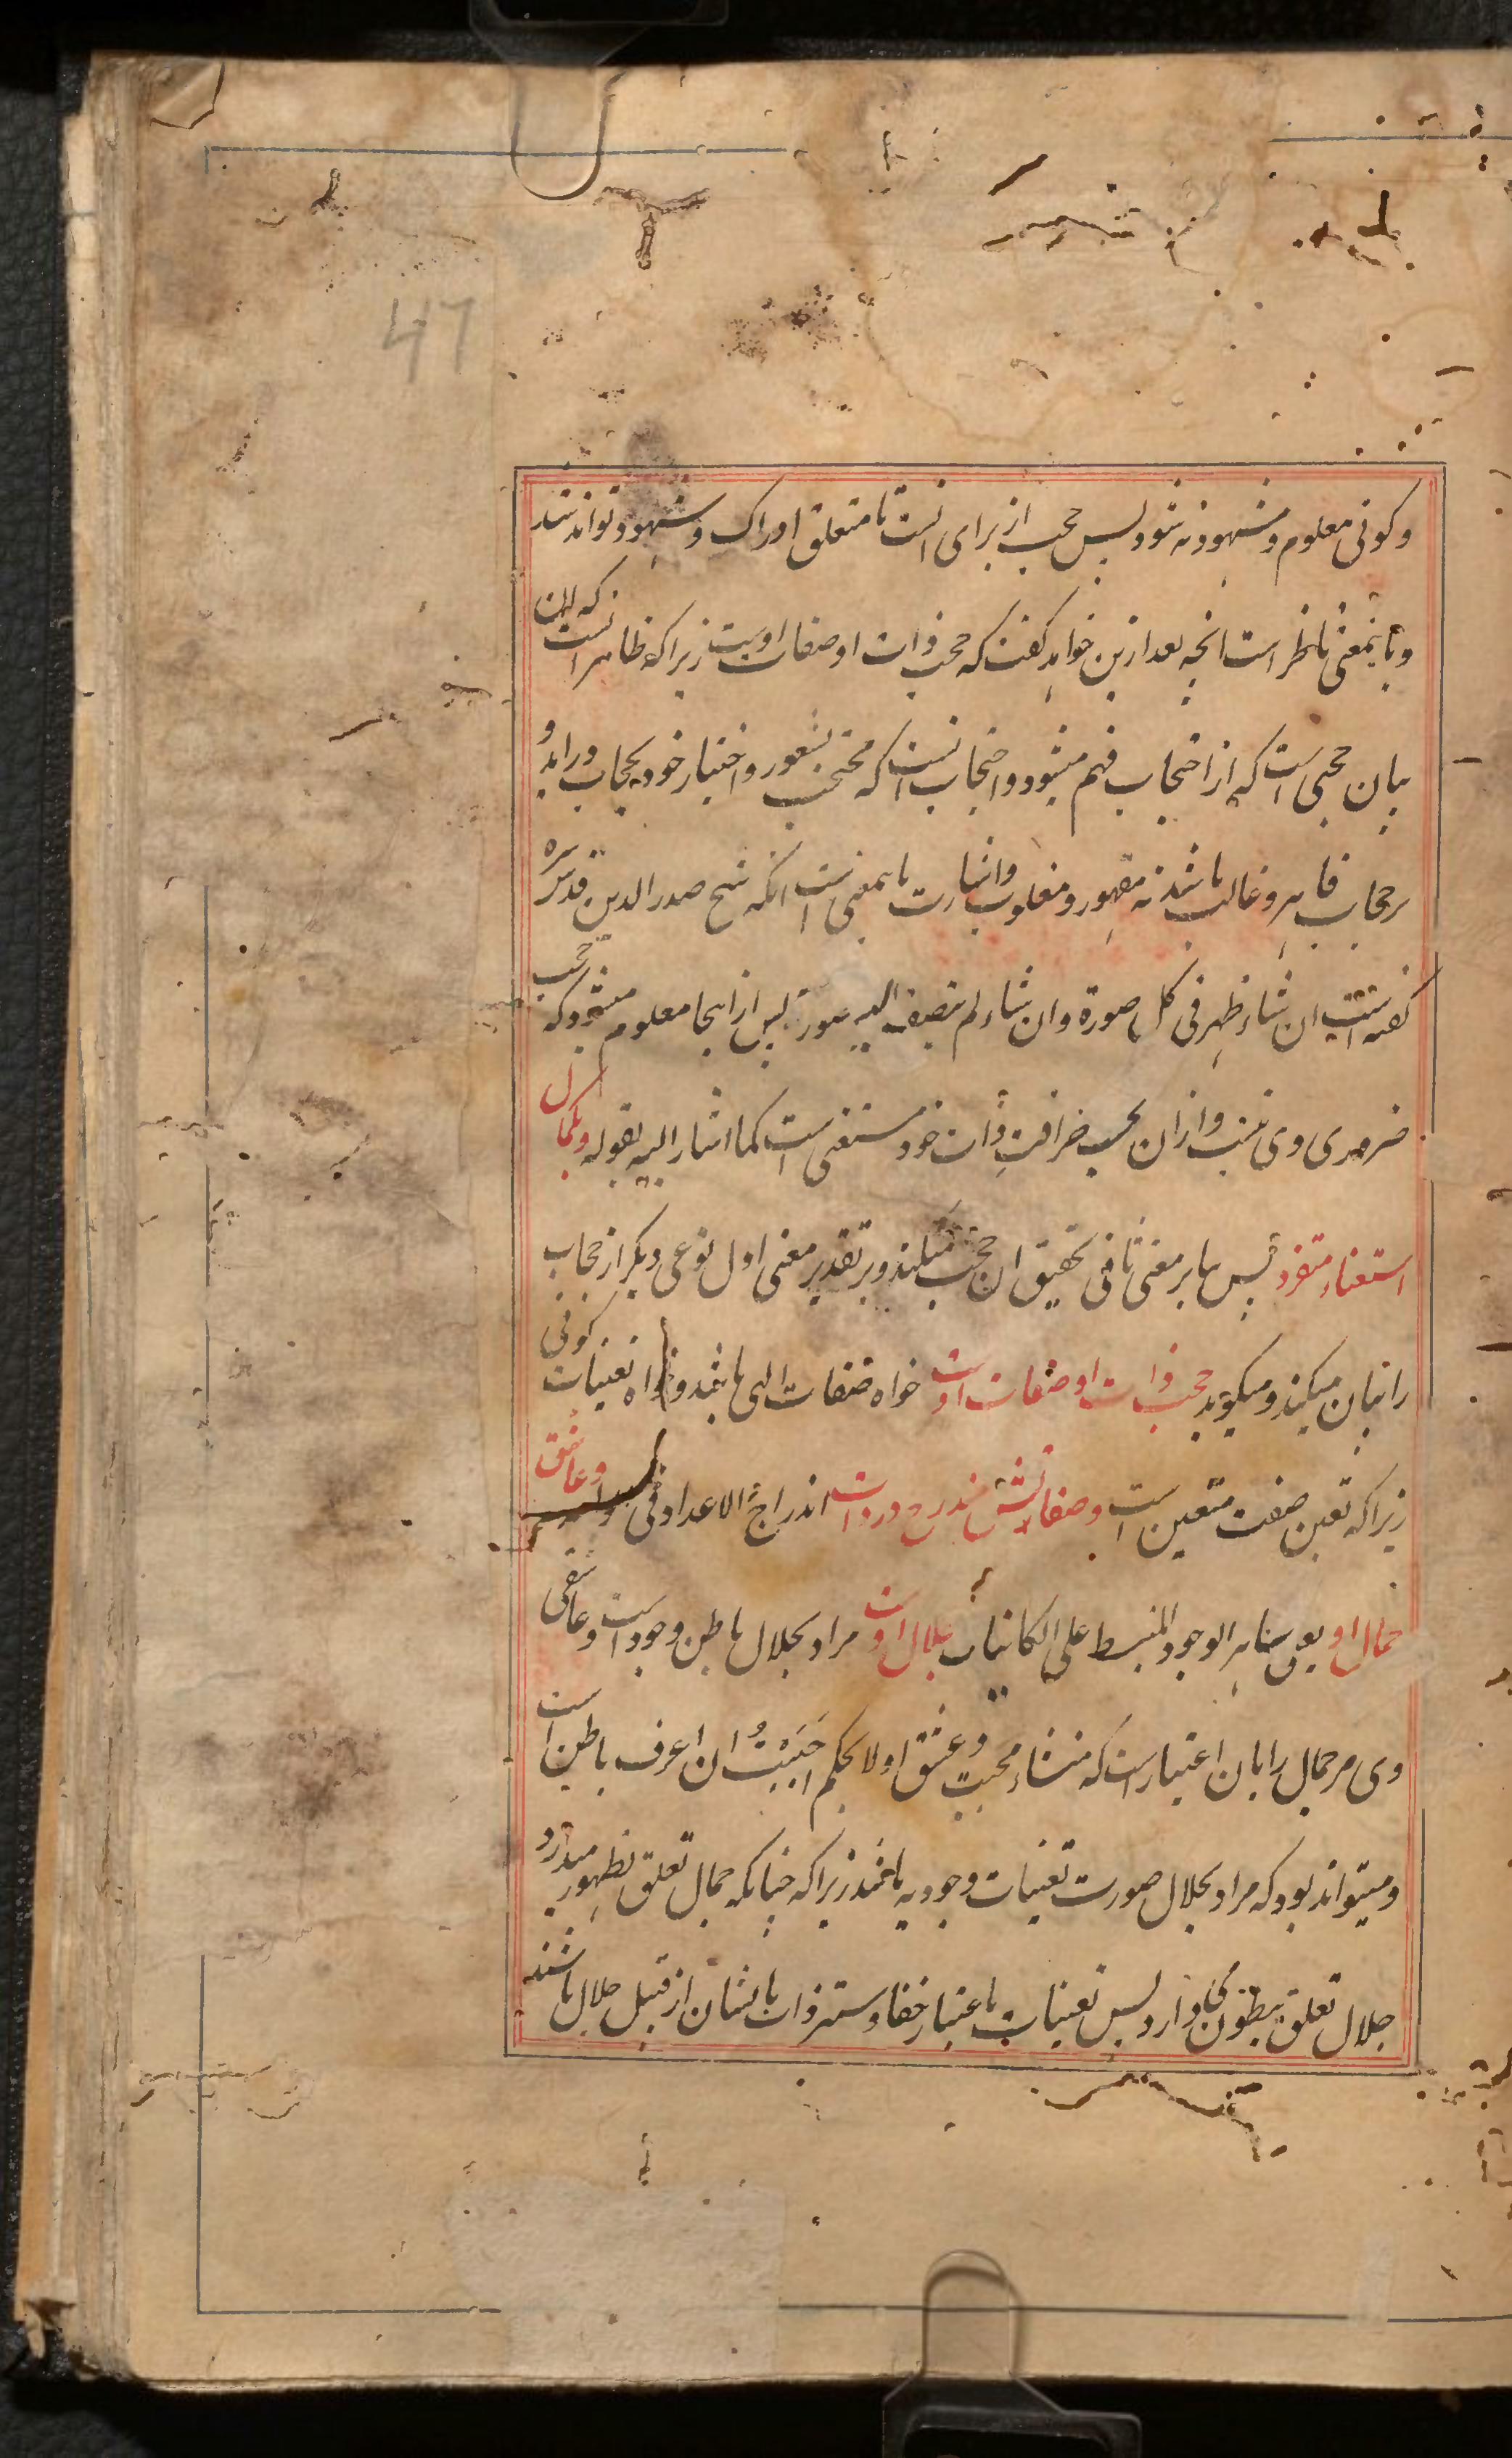 47
و کونی معلوم و مشهود نه شود پس حجب از برای انست تا متعلق ادراک و شهود تواند شد
و باینمعنی ناظر است انچه بعد ازین خواهد کفت که حجب ذات او صفات اوست زیرا که ظاهر انست که این
بیان حجبی است که از احتجاب فهم میشود و احتجاب انست که محتجب بشعور و اختیار خود بحجاب دراید و
بر حجاب قاهر و غالب باشد نه مقهور و مغلوب و اشارت باینمعنی است انکه شیخ صدر الدین قدس سره
کفته است ان شاء ظهر فی کل صورة وان شاء لم تنضف الیه صورة پس از اینجا معلوم میشود که حجب
ضروری وی نیست و از ان بحسب صرافت ذات خود مستغنی است کما اشار الیه بقوله و بکمال
استغناء متفرد پس بنا بر معنی ثانی تحقیق ان حجب میکند و بر تقدیر معنی اول نوعی دیکر از حجاب
را بیان میکند و میکوید حجب ذات او صفات اوست خواه صفات الهی باشد و خواه تعینات کونی
زیرا که تعین صفت متعین است و صفاتش مندرج در ذات اندراج الاعداد فی الواحد و عاشق
جمال او یعنی ظاهر الوجود المنبسط علی الکائنات جلال اوست مراد بجلال باطن وجود است و عاشقی
وی مر جمال را بان اعتبار است که منشاء محبت و عشق اولا بحکم احببت ان اعرف باطن است
و میتواند بود که مراد بجلال صورت تعینات وجودیه باشد زیرا که چنانکه جمال تعلق بظهور میدارد
جلال تعلق ببطون و خفا دارد پس تعینات باعتبار خفا و ستر ذات بایشان از قبیل جلال باشند